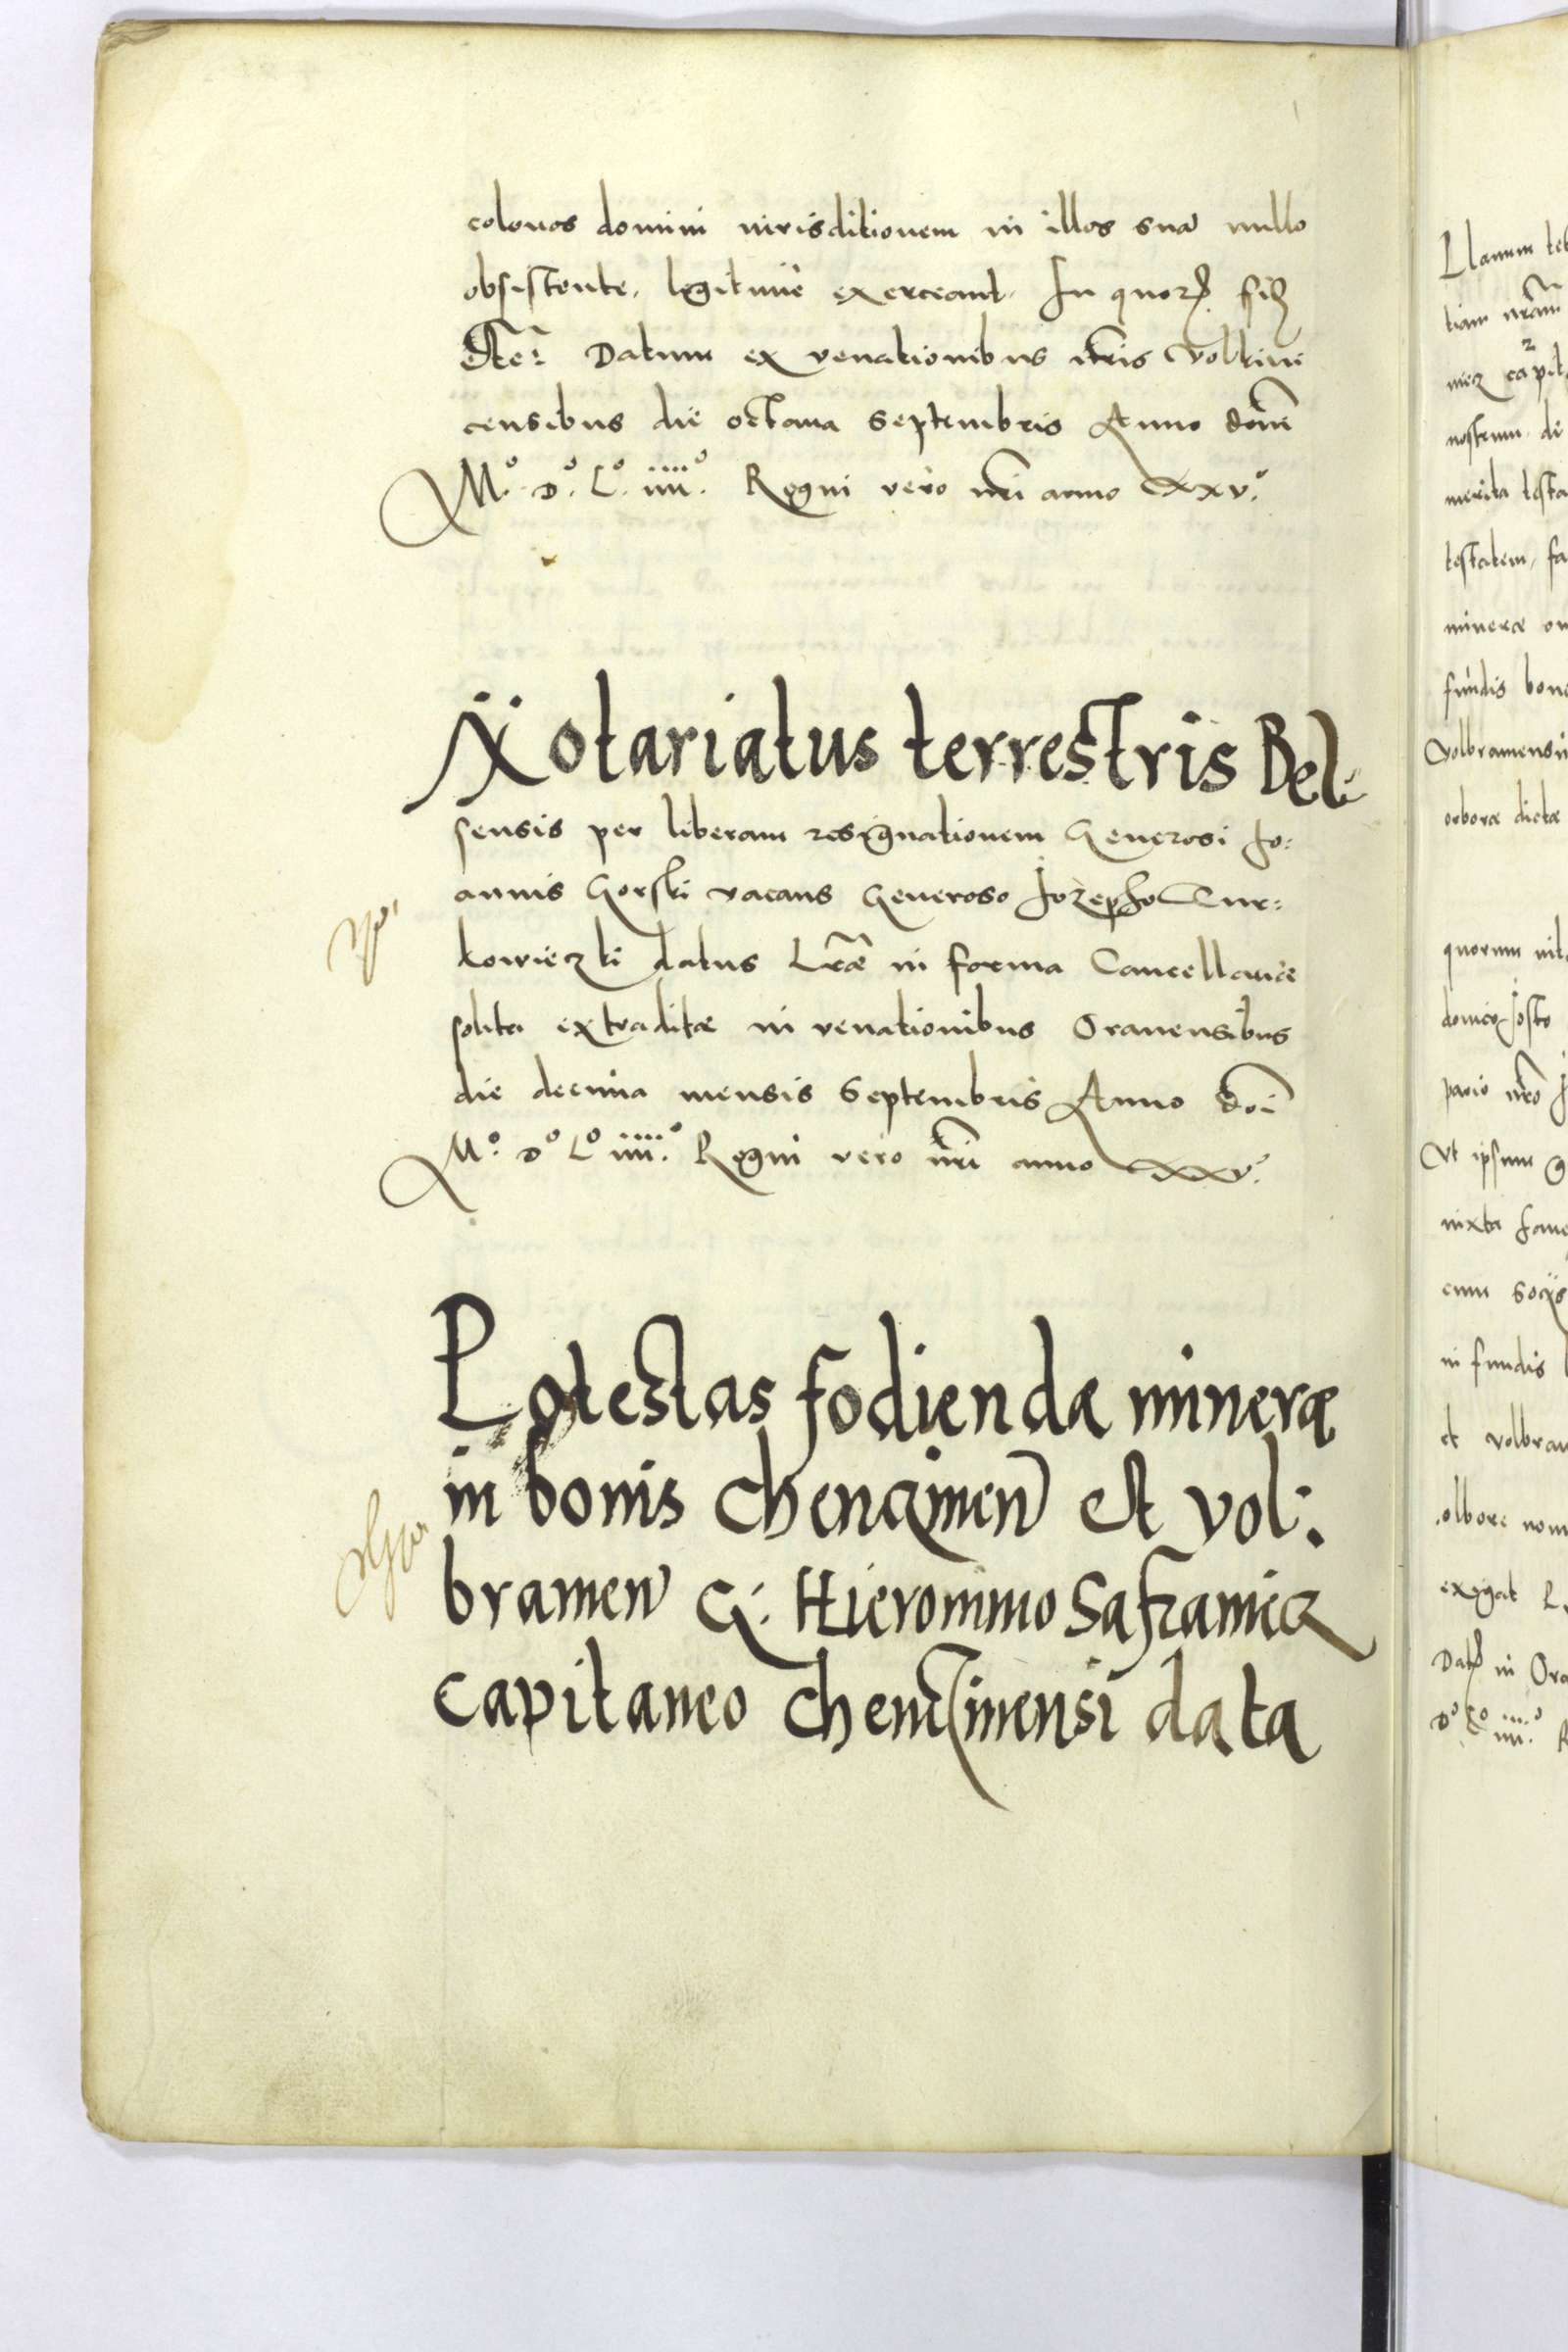 colonos domini iurisditionem in illos sua nullo
obsistente, legitimè exerceant. In quorȝ. fiđ
etc̃: Datum ex venationibus nr̃is Volkini
censibus die octaua Septembris Anno domĩ
Mº. Dº. Lº. iiiiº. Regni vero nr̃i anno xxvº.
Notariatus terrestris Bel:
sensis per liberam resignationem Generosi Jo:
annis Gorski vacans Generoso Jozepho Tur:
kowieczki datus Lr̃æ in forma Cancellariæ
solita extraditæ in venationibus Oranensibus
die decima mensis Septembris Anno Doĩ
Mº. Dº Lº iiiiº. Regni vero nr̃i anno xxvº.
Potestas fodiendæ mineræ
in bonis Chencimeñ et Vol:
brameñ G: Hieronimo Safraniecz
Capitaneo Chencimensi data
Llanum
tiam nr̃am
niecz capit
nostrum. di
merita testa
testatem, fa
mineræ om
fundis bon
Volbramensi
orboræ dictæ
quorum vit
donico Josto
pario nr̃o
Vt ipsum G
iuxta
cum socijs
in fundis
et volbram
olboræ nom
exigat
Datȝ in Ora
Dº Lº iiiiº. R